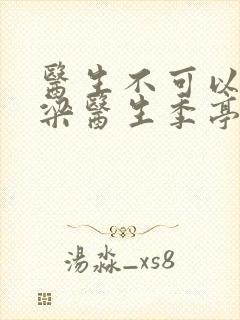 醫生不可以
梁醫生季亭
湯淼_xs8